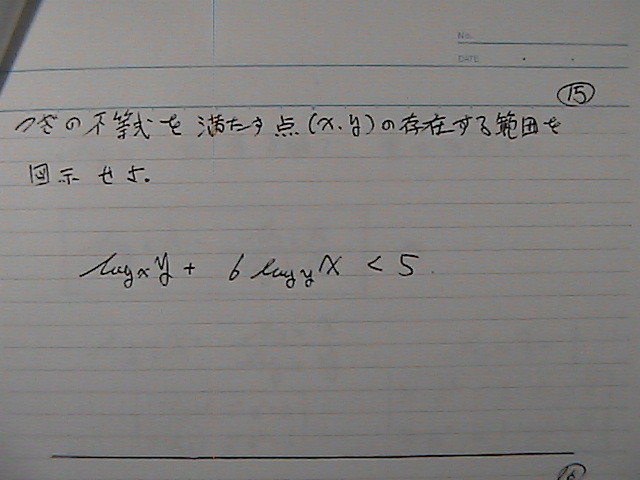 No.
DATE
⑮
つぎの不等式を満たす点(x.y)の存在する範囲を
図示せよ.
log_x y + 6 log_y x < 5.